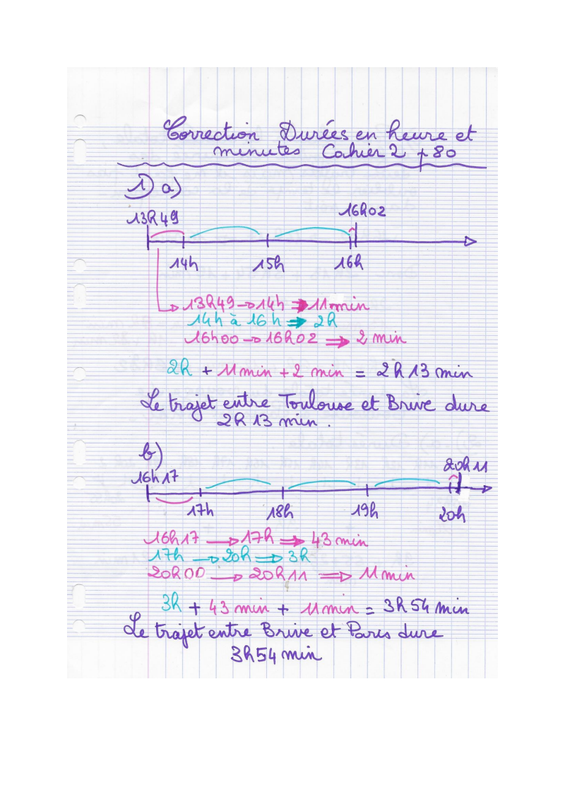 Correction Durées en heure et
minutes Cahier 2 p 80
1) a)
13h49 16h02
14h 15h 16h
13h49 → 14h ⇒ 11 min
14h à 16h ⇒ 2h
16h00 → 16h02 ⇒ 2 min
2h + 11 min + 2 min = 2h 13 min
Le trajet entre Toulouse et Brive dure
2h 13 min.
b)
16h17 20h11
17h 18h 19h 20h
16h17 → 17h ⇒ 43 min
17h → 20h ⇒ 3h
20h00 → 20h11 ⇒ 11 min
3h + 43 min + 11 min = 3h 54 min
Le trajet entre Brive et Paris dure
3h54 min